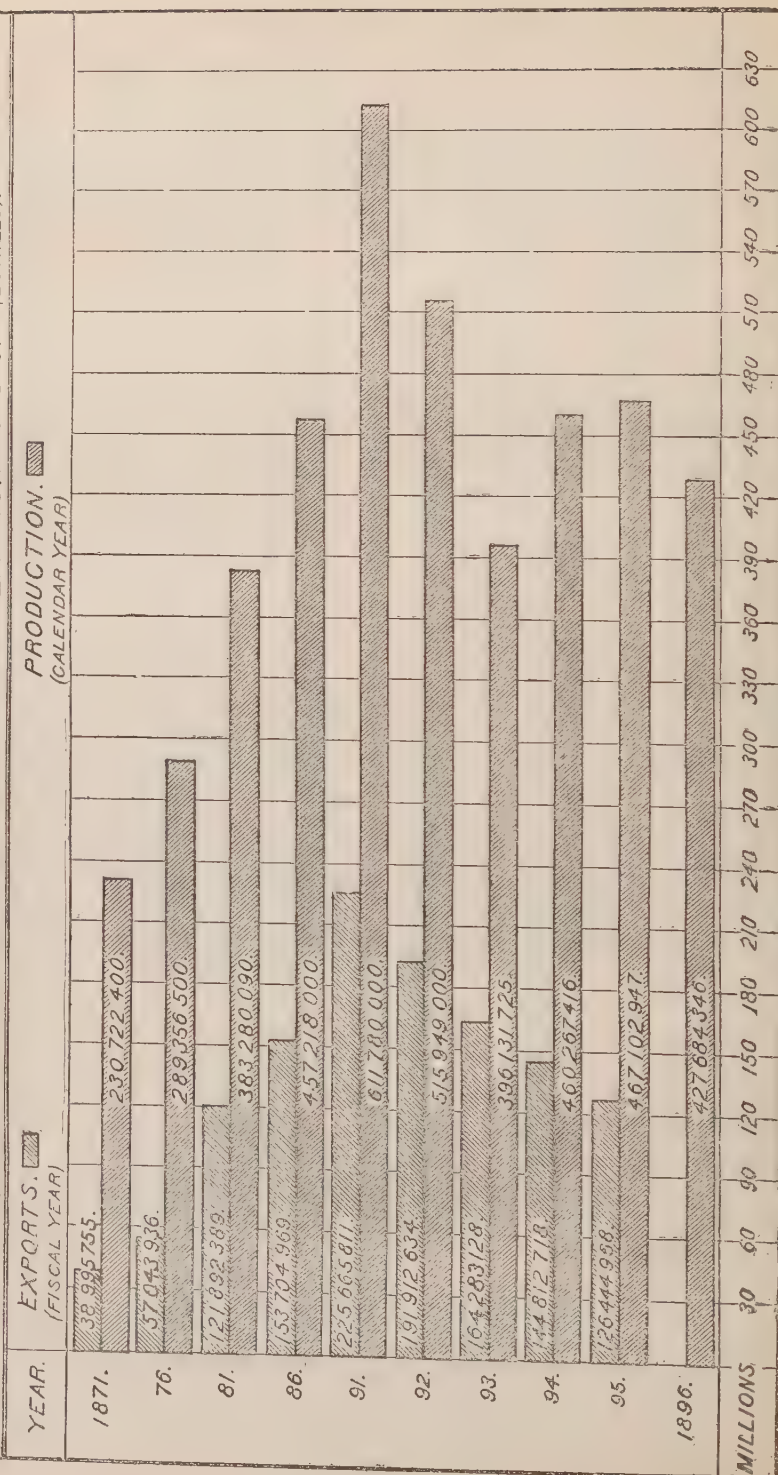 YEAR.
EXPORTS.
(FISCAL YEAR)
PRODUCTION.
(CALENDAR YEAR)
1871.
38 995 755.
230 722 400.
76.
57 043 936.
289 356 500.
81.
121 892 389.
383 280 090.
86.
153 704 969.
457 218 000.
91.
225 665 811.
611 780 000.
92.
191 912 634.
515 949 000.
93.
164 283 128.
396 131 725.
94.
144 812 718.
460 267 416.
95.
126 444 958.
467 102 947.
1896.
427 684 346.
MILLIONS. 30 60 90 120 150 180 210 240 270 300 330 360 390 420 450 480 510 540 570 600 630